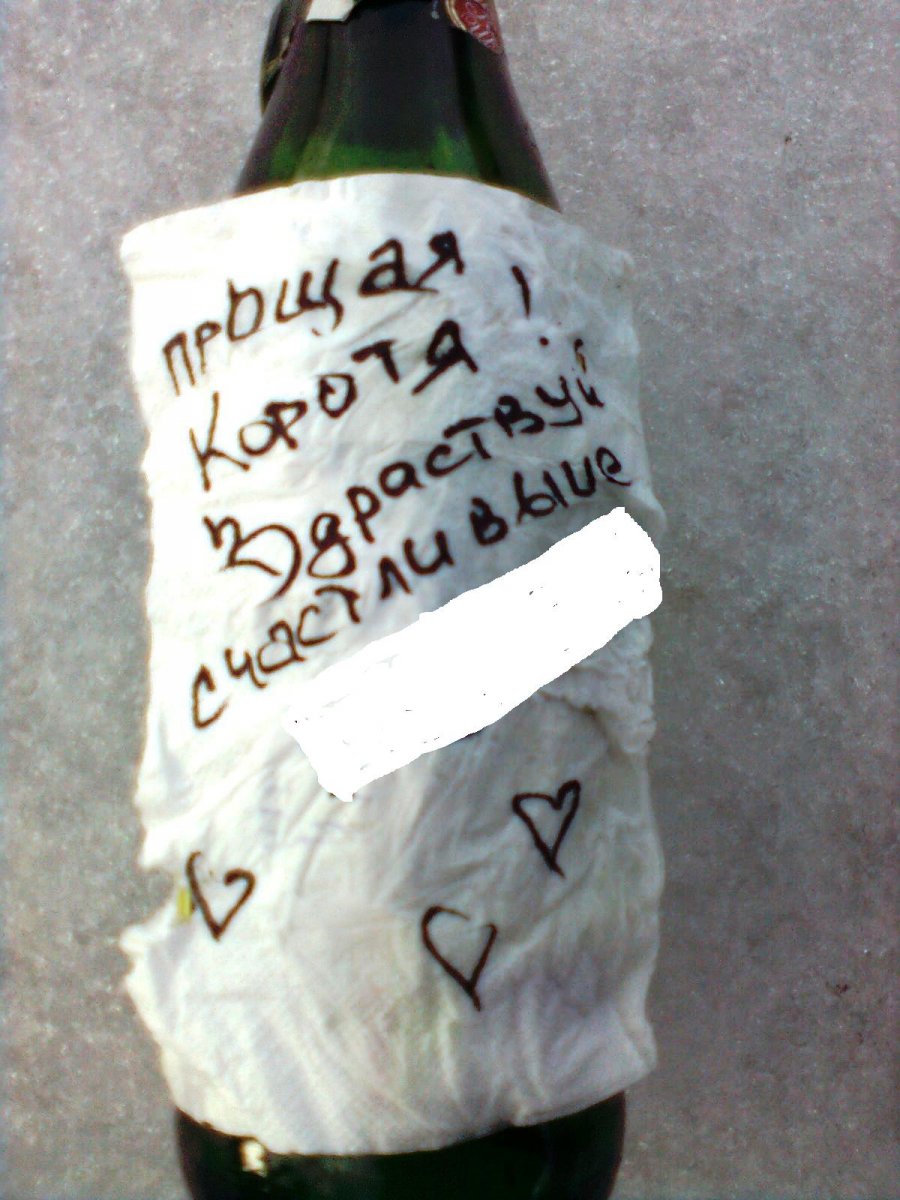 прощая
Коротя !
Здраствуй
счастливыие